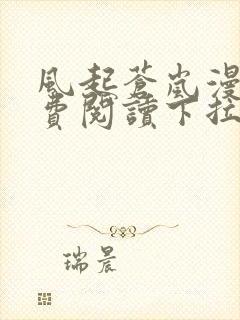 風起蒼嵐漫
費閱讀下拉
瑞晨